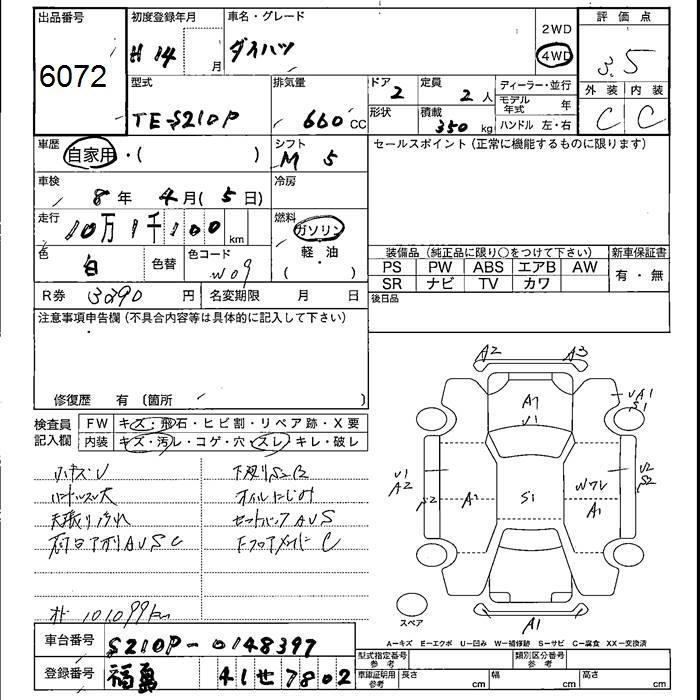 出品番号 初度登録年月 車名・グレード 2WD 評価点
6072 H 14 月 ダイハツ 4WD 3.5
型式 排気量 ドア 2 定員 2 人 ディーラー・並行 外装 内装
モデル年式 年
TE-S210P 660 CC 形状 積載 350 kg ハンドル 左・右 C C
車歴 自家用・( ) シフト M 5 セールスポイント(正常に機能するものに限ります)
車検 8 年 4 月( 5 日) 冷房
走行 10万1千100 km 燃料 ガソリン
軽・油
( ・ )
色 白 色替 色コード W09 装備品(純正品に限り○をつけて下さい) 新車保証書
PS PW ABS エアB AW 有・無
SR ナビ TV カワ
R券 3290 円 名変期限 月 日 後日品
注意事項申告欄(不具合内容等は具体的に記入して下さい)
修復歴 有 〔箇所 〕
検査員記入欄 FW キズ・飛石・ヒビ割・リペア跡・X要
内装 キズ・汚レ・コゲ・穴・スレ・キレ・破レ
小キズU 下廻りS2B
ハンドルスレ大 オイルにじみ
天張り汚れ セットバックAUS
AUSC C
101,099km
A2 A3
A1 U1
UA1
S1
U1
A2
S2
A1
S1
W7U
A1
U2
S2
A1
スペア
A-キズ E-エクボ U-凹み W-補修跡 S-サビ C-腐食 XX-交換済
車台番号 S210P-0148397
登録番号 福島 41せ7802
型式指定番号 参考 類別区分番号 参考
車庫証明用 参考 長さ cm 幅 cm 高さ cm